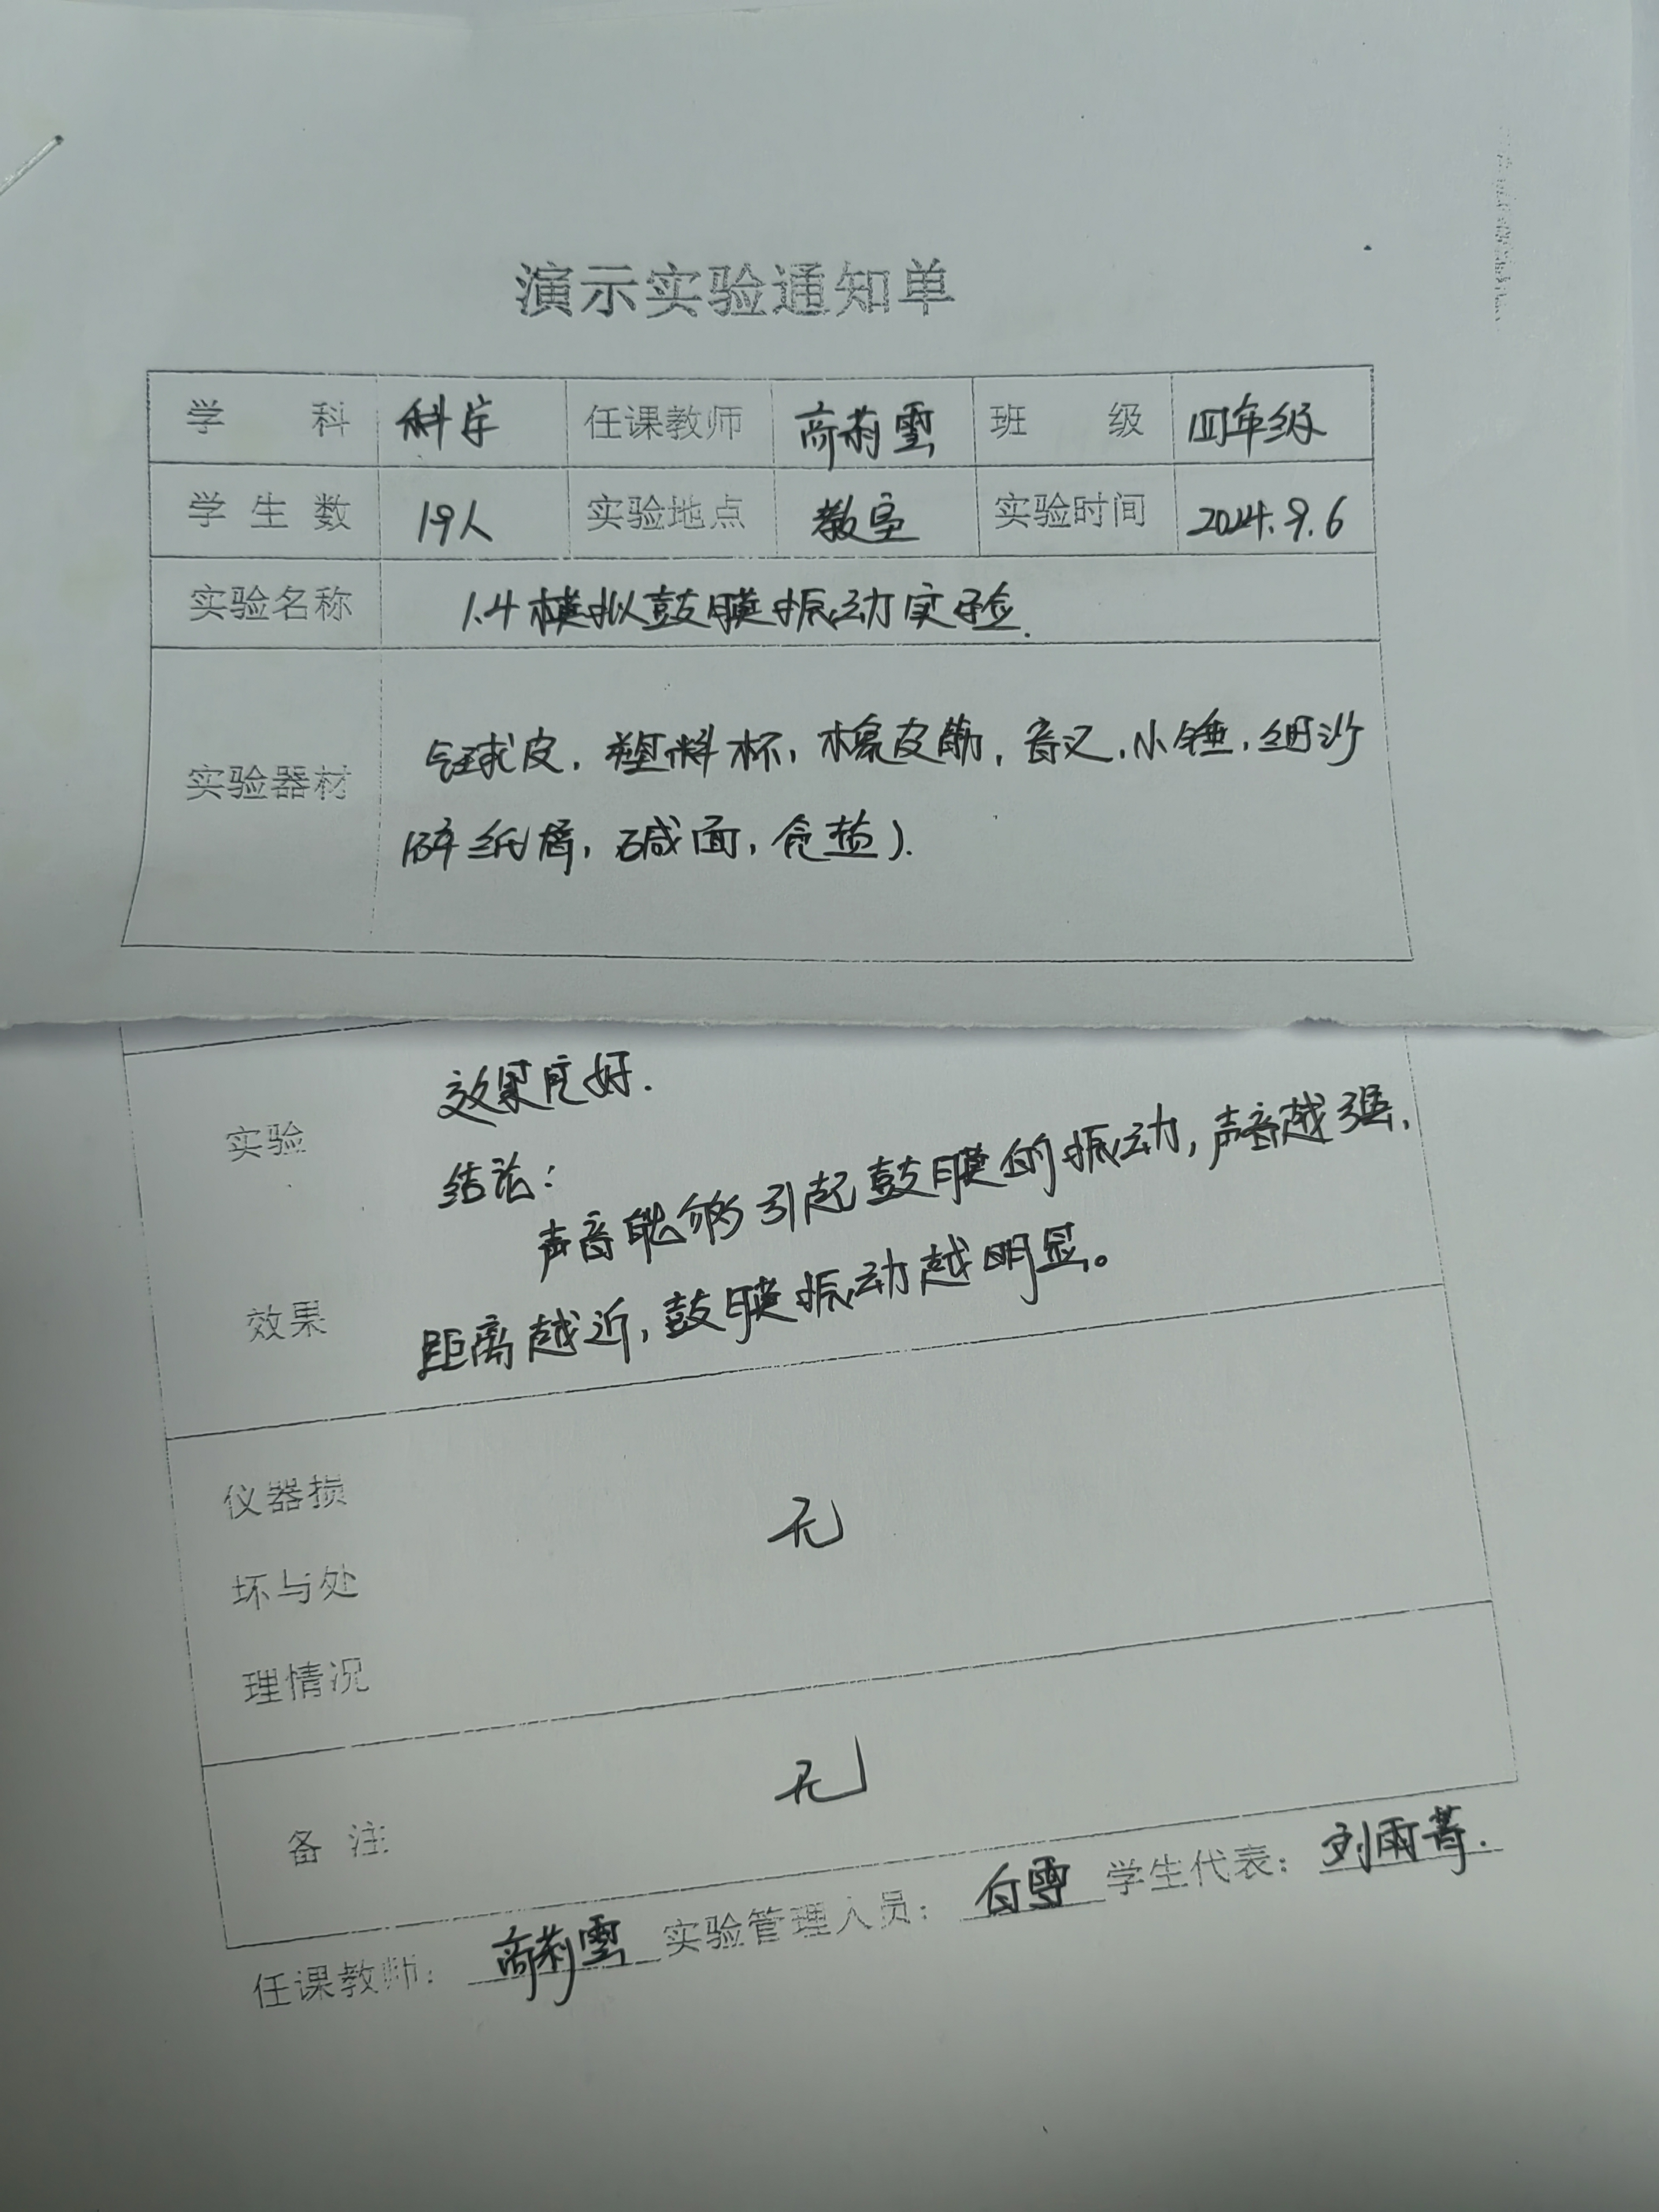 演示实验通知单
学 科 科学 任课教师 商莉雪 班 级 四年级
学 生 数 19人 实验地点 教室 实验时间 2024.9.6
实验名称 1.4模拟鼓膜振动实验.
实验器材 气球皮，塑料杯，橡皮筋，音叉，小锤，细沙
(碎纸屑，碱面，食盐).
实验 效果良好.
结论：
声音能够引起鼓膜的振动，声音越强，
效果 距离越近，鼓膜振动越明显。
仪器损
坏与处 无
理情况
备 注 无
任课教师：商莉雪 实验管理人员：白雪 学生代表：刘雨菁.